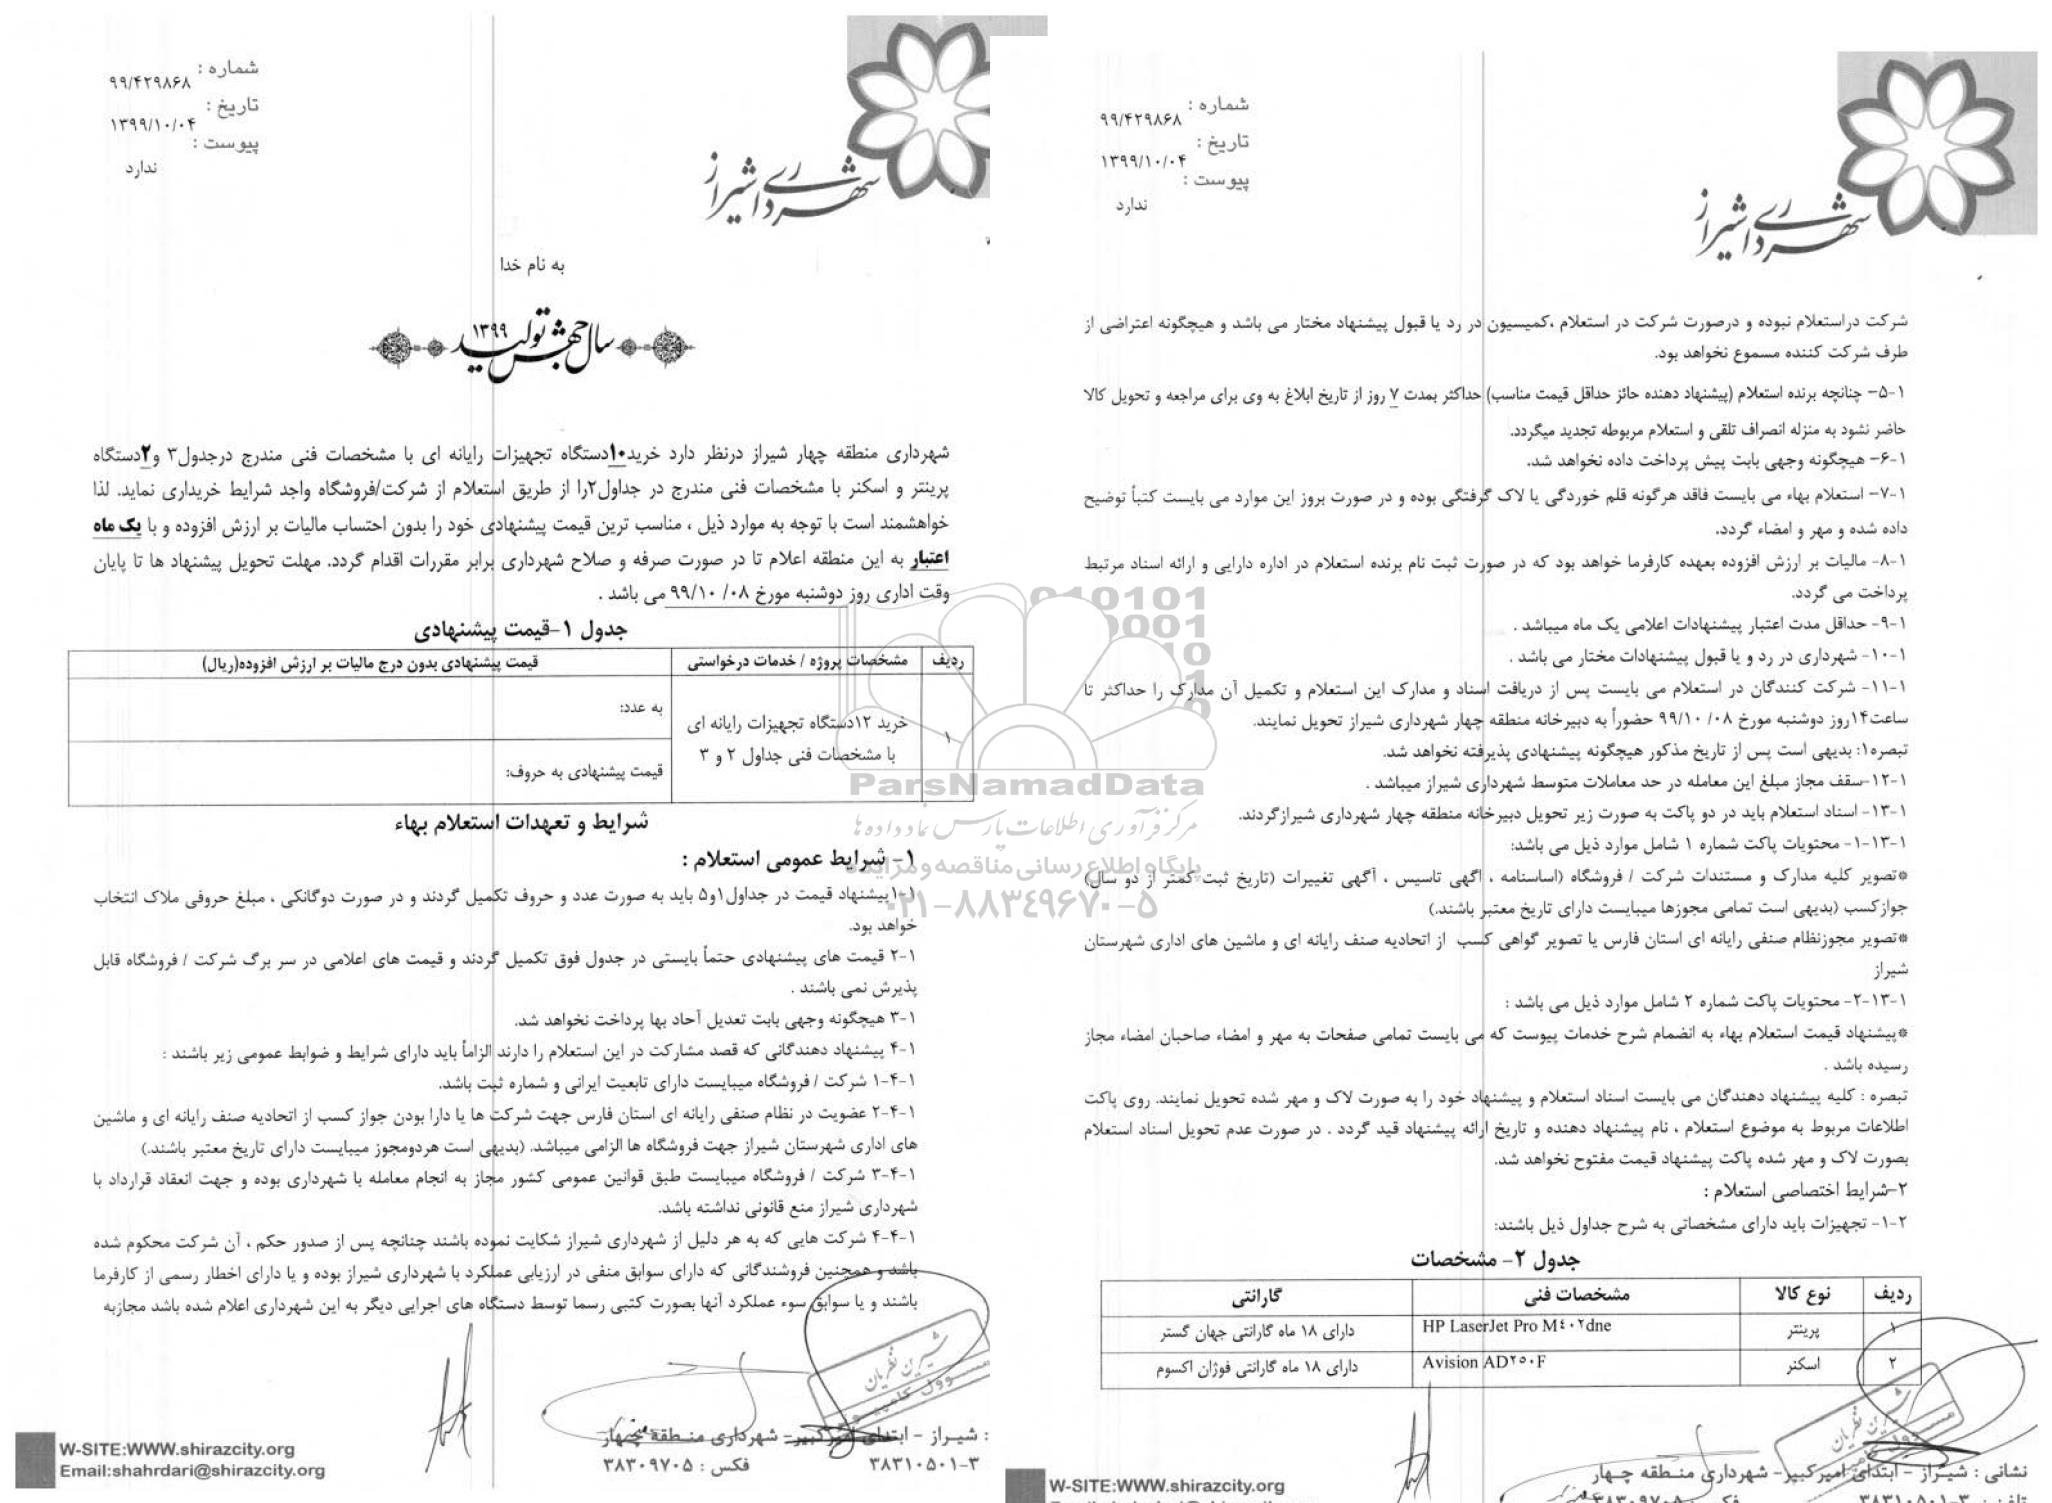 شماره : ۹۹/۴۲۹۸۶۸
تاریخ : ۱۳۹۹/۱۰/۰۴
پیوست :
ندارد
شهرداری شیراز
به نام خدا
سال جهش تولید ۱۳۹۹
شهرداری منطقه چهار شیراز درنظر دارد خرید۱۰دستگاه تجهیزات رایانه ای با مشخصات فنی مندرج درجدول۳ و۲دستگاه
پرینتر و اسکنر با مشخصات فنی مندرج در جداول۲را از طریق استعلام از شرکت/فروشگاه واجد شرایط خریداری نماید. لذا
خواهشمند است با توجه به موارد ذیل ، مناسب ترین قیمت پیشنهادی خود را بدون احتساب مالیات بر ارزش افزوده و با یک ماه
اعتبار به این منطقه اعلام تا در صورت صرفه و صلاح شهرداری برابر مقررات اقدام گردد. مهلت تحویل پیشنهاد ها تا پایان
وقت اداری روز دوشنبه مورخ ۹۹/۱۰ /۰۸ می باشد .
جدول ۱-قیمت پیشنهادی
ردیف مشخصات پروژه / خدمات درخواستی قیمت پیشنهادی بدون درج مالیات بر ارزش افزوده(ریال)
۱ خرید ۱۲دستگاه تجهیزات رایانه ای
با مشخصات فنی جداول ۲ و ۳
به عدد:
قیمت پیشنهادی به حروف:
شرایط و تعهدات استعلام بهاء
۱- شرایط عمومی استعلام :
۱-۱پیشنهاد قیمت در جداول۱و۵ باید به صورت عدد و حروف تکمیل گردند و در صورت دوگانکی ، مبلغ حروفی ملاک انتخاب
خواهد بود.
۲-۱ قیمت های پیشنهادی حتماً بایستی در جدول فوق تکمیل گردند و قیمت های اعلامی در سر برگ شرکت / فروشگاه قابل
پذیرش نمی باشند .
۳-۱ هیچگونه وجهی بابت تعدیل آحاد بها پرداخت نخواهد شد.
۴-۱ پیشنهاد دهندگانی که قصد مشارکت در این استعلام را دارند الزاماً باید دارای شرایط و ضوابط عمومی زیر باشند :
۱-۴-۱ شرکت / فروشگاه میبایست دارای تابعیت ایرانی و شماره ثبت باشد.
۲-۴-۱ عضویت در نظام صنفی رایانه ای استان فارس جهت شرکت ها یا دارا بودن جواز کسب از اتحادیه صنف رایانه ای و ماشین
های اداری شهرستان شیراز جهت فروشگاه ها الزامی میباشد. (بدیهی است هردومجوز میبایست دارای تاریخ معتبر باشند.)
۳-۴-۱ شرکت / فروشگاه میبایست طبق قوانین عمومی کشور مجاز به انجام معامله با شهرداری بوده و جهت انعقاد قرارداد با
شهرداری شیراز منع قانونی نداشته باشد.
۴-۴-۱ شرکت هایی که به هر دلیل از شهرداری شیراز شکایت نموده باشند چنانچه پس از صدور حکم ، آن شرکت محکوم شده
باشد و همچنین فروشندگانی که دارای سوابق منفی در ارزیابی عملکرد با شهرداری شیراز بوده و یا دارای اخطار رسمی از کارفرما
باشند و یا سوابق سوء عملکرد آنها بصورت کتبی رسما توسط دستگاه های اجرایی دیگر به این شهرداری اعلام شده باشد مجازبه
: شیراز - ابتدای امیرکبیر- شهرداری منطقه چهار
۳۸۳۱۰۵۰۱-۳ فکس : ۳۸۳۰۹۷۰۵
W-SITE:WWW.shirazcity.org
Email:shahrdari@shirazcity.org
شماره : ۹۹/۴۲۹۸۶۸
تاریخ : ۱۳۹۹/۱۰/۰۴
پیوست :
ندارد
شهرداری شیراز
شرکت دراستعلام نبوده و درصورت شرکت در استعلام ،کمیسیون در رد یا قبول پیشنهاد مختار می باشد و هیچگونه اعتراضی از
طرف شرکت کننده مسموع نخواهد بود.
۵-۱- چنانچه برنده استعلام (پیشنهاد دهنده حائز حداقل قیمت مناسب) حداکثر بمدت ۷ روز از تاریخ ابلاغ به وی برای مراجعه و تحویل کالا
حاضر نشود به منزله انصراف تلقی و استعلام مربوطه تجدید میگردد.
۶-۱- هیچگونه وجهی بابت پیش پرداخت داده نخواهد شد.
۷-۱- استعلام بهاء می بایست فاقد هرگونه قلم خوردگی یا لاک گرفتگی بوده و در صورت بروز این موارد می بایست کتباً توضیح
داده شده و مهر و امضاء گردد.
۸-۱- مالیات بر ارزش افزوده بعهده کارفرما خواهد بود که در صورت ثبت نام برنده استعلام در اداره دارایی و ارائه اسناد مرتبط
پرداخت می گردد.
۹-۱- حداقل مدت اعتبار پیشنهادات اعلامی یک ماه میباشد .
۱۰-۱- شهرداری در رد و یا قبول پیشنهادات مختار می باشد .
۱۱-۱- شرکت کنندگان در استعلام می بایست پس از دریافت اسناد و مدارک این استعلام و تکمیل آن مدارک را حداکثر تا
ساعت۱۴روز دوشنبه مورخ ۹۹/۱۰ /۰۸ حضوراً به دبیرخانه منطقه چهار شهرداری شیراز تحویل نمایند.
تبصره۱: بدیهی است پس از تاریخ مذکور هیچگونه پیشنهادی پذیرفته نخواهد شد.
۱۲-۱-سقف مجاز مبلغ این معامله در حد معاملات متوسط شهرداری شیراز میباشد .
۱۳-۱- اسناد استعلام باید در دو پاکت به صورت زیر تحویل دبیرخانه منطقه چهار شهرداری شیرازگردند.
۱-۱۳-۱- محتویات پاکت شماره ۱ شامل موارد ذیل می باشد:
*تصویر کلیه مدارک و مستندات شرکت / فروشگاه (اساسنامه ، آگهی تاسیس ، آگهی تغییرات (تاریخ ثبت کمتر از دو سال)
جوازکسب (بدیهی است تمامی مجوزها میبایست دارای تاریخ معتبر باشند.)
*تصویر مجوزنظام صنفی رایانه ای استان فارس یا تصویر گواهی کسب از اتحادیه صنف رایانه ای و ماشین های اداری شهرستان
شیراز
۲-۱۳-۱- محتویات پاکت شماره ۲ شامل موارد ذیل می باشد :
*پیشنهاد قیمت استعلام بهاء به انضمام شرح خدمات پیوست که می بایست تمامی صفحات به مهر و امضاء صاحبان امضاء مجاز
رسیده باشد .
تبصره : کلیه پیشنهاد دهندگان می بایست اسناد استعلام و پیشنهاد خود را به صورت لاک و مهر شده تحویل نمایند. روی پاکت
اطلاعات مربوط به موضوع استعلام ، نام پیشنهاد دهنده و تاریخ ارائه پیشنهاد قید گردد . در صورت عدم تحویل اسناد استعلام
بصورت لاک و مهر شده پاکت پیشنهاد قیمت مفتوح نخواهد شد.
۲-شرایط اختصاصی استعلام :
۱-۲- تجهیزات باید دارای مشخصاتی به شرح جداول ذیل باشند:
جدول ۲- مشخصات
ردیف نوع کالا مشخصات فنی گارانتی
۱ پرینتر HP LaserJet Pro M٤۰۲dne دارای ۱۸ ماه گارانتی جهان گستر
۲ اسکنر Avision AD۲۵۰F دارای ۱۸ ماه گارانتی فوژان اکسوم
نشانی : شیراز - ابتدای امیرکبیر- شهرداری منطقه چهار
تلفن : ۳۸۳۱۰۵۰۱-۳ فکس : ۳۸۳۰۹۷۰۵
W-SITE:WWW.shirazcity.org
ParsNamadData
مرکز فرآوری اطلاعات پارس نماد داده ها
پایگاه اطلاع رسانی مناقصه و مزایده
۰۲۱-۸۸۳٤۹۶۷۰-۵